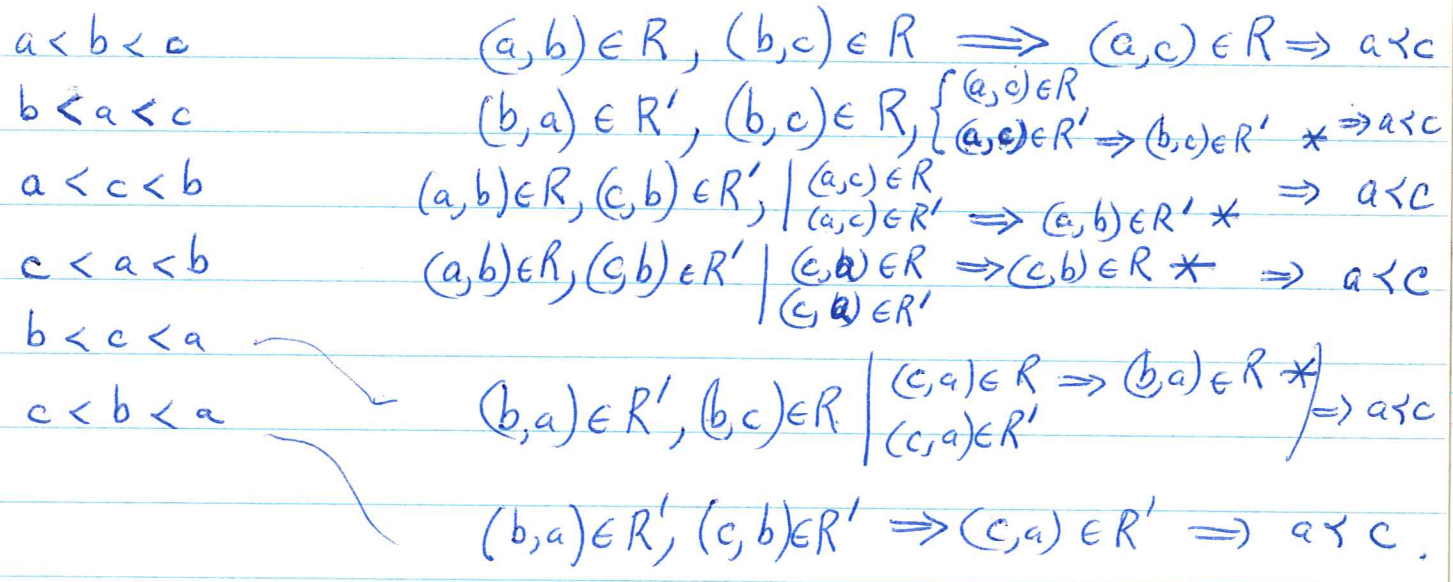 a < b < c (a,b) ∈ R, (b,c) ∈ R ⟹ (a,c) ∈ R ⇒ a ≺ c
b < a < c (b,a) ∈ R′, (b,c) ∈ R, { (a,c) ∈ R
(a,c) ∈ R′ ⇒ (b,c) ∈ R′ * ⇒ a ≺ c
a < c < b (a,b) ∈ R, (c,b) ∈ R′, | (a,c) ∈ R
(a,c) ∈ R′ ⇒ (a,b) ∈ R′ * ⇒ a ≺ c
c < a < b (a,b) ∈ R, (c,b) ∈ R′ | (c,a) ∈ R ⇒ (c,b) ∈ R * ⇒ a ≺ c
(c,a) ∈ R′
b < c < a
(b,a) ∈ R′, (b,c) ∈ R | (c,a) ∈ R ⇒ (b,a) ∈ R * ⇒ a ≺ c
(c,a) ∈ R′
c < b < a
(b,a) ∈ R′, (c,b) ∈ R′ ⇒ (c,a) ∈ R′ ⇒ a ≺ c.